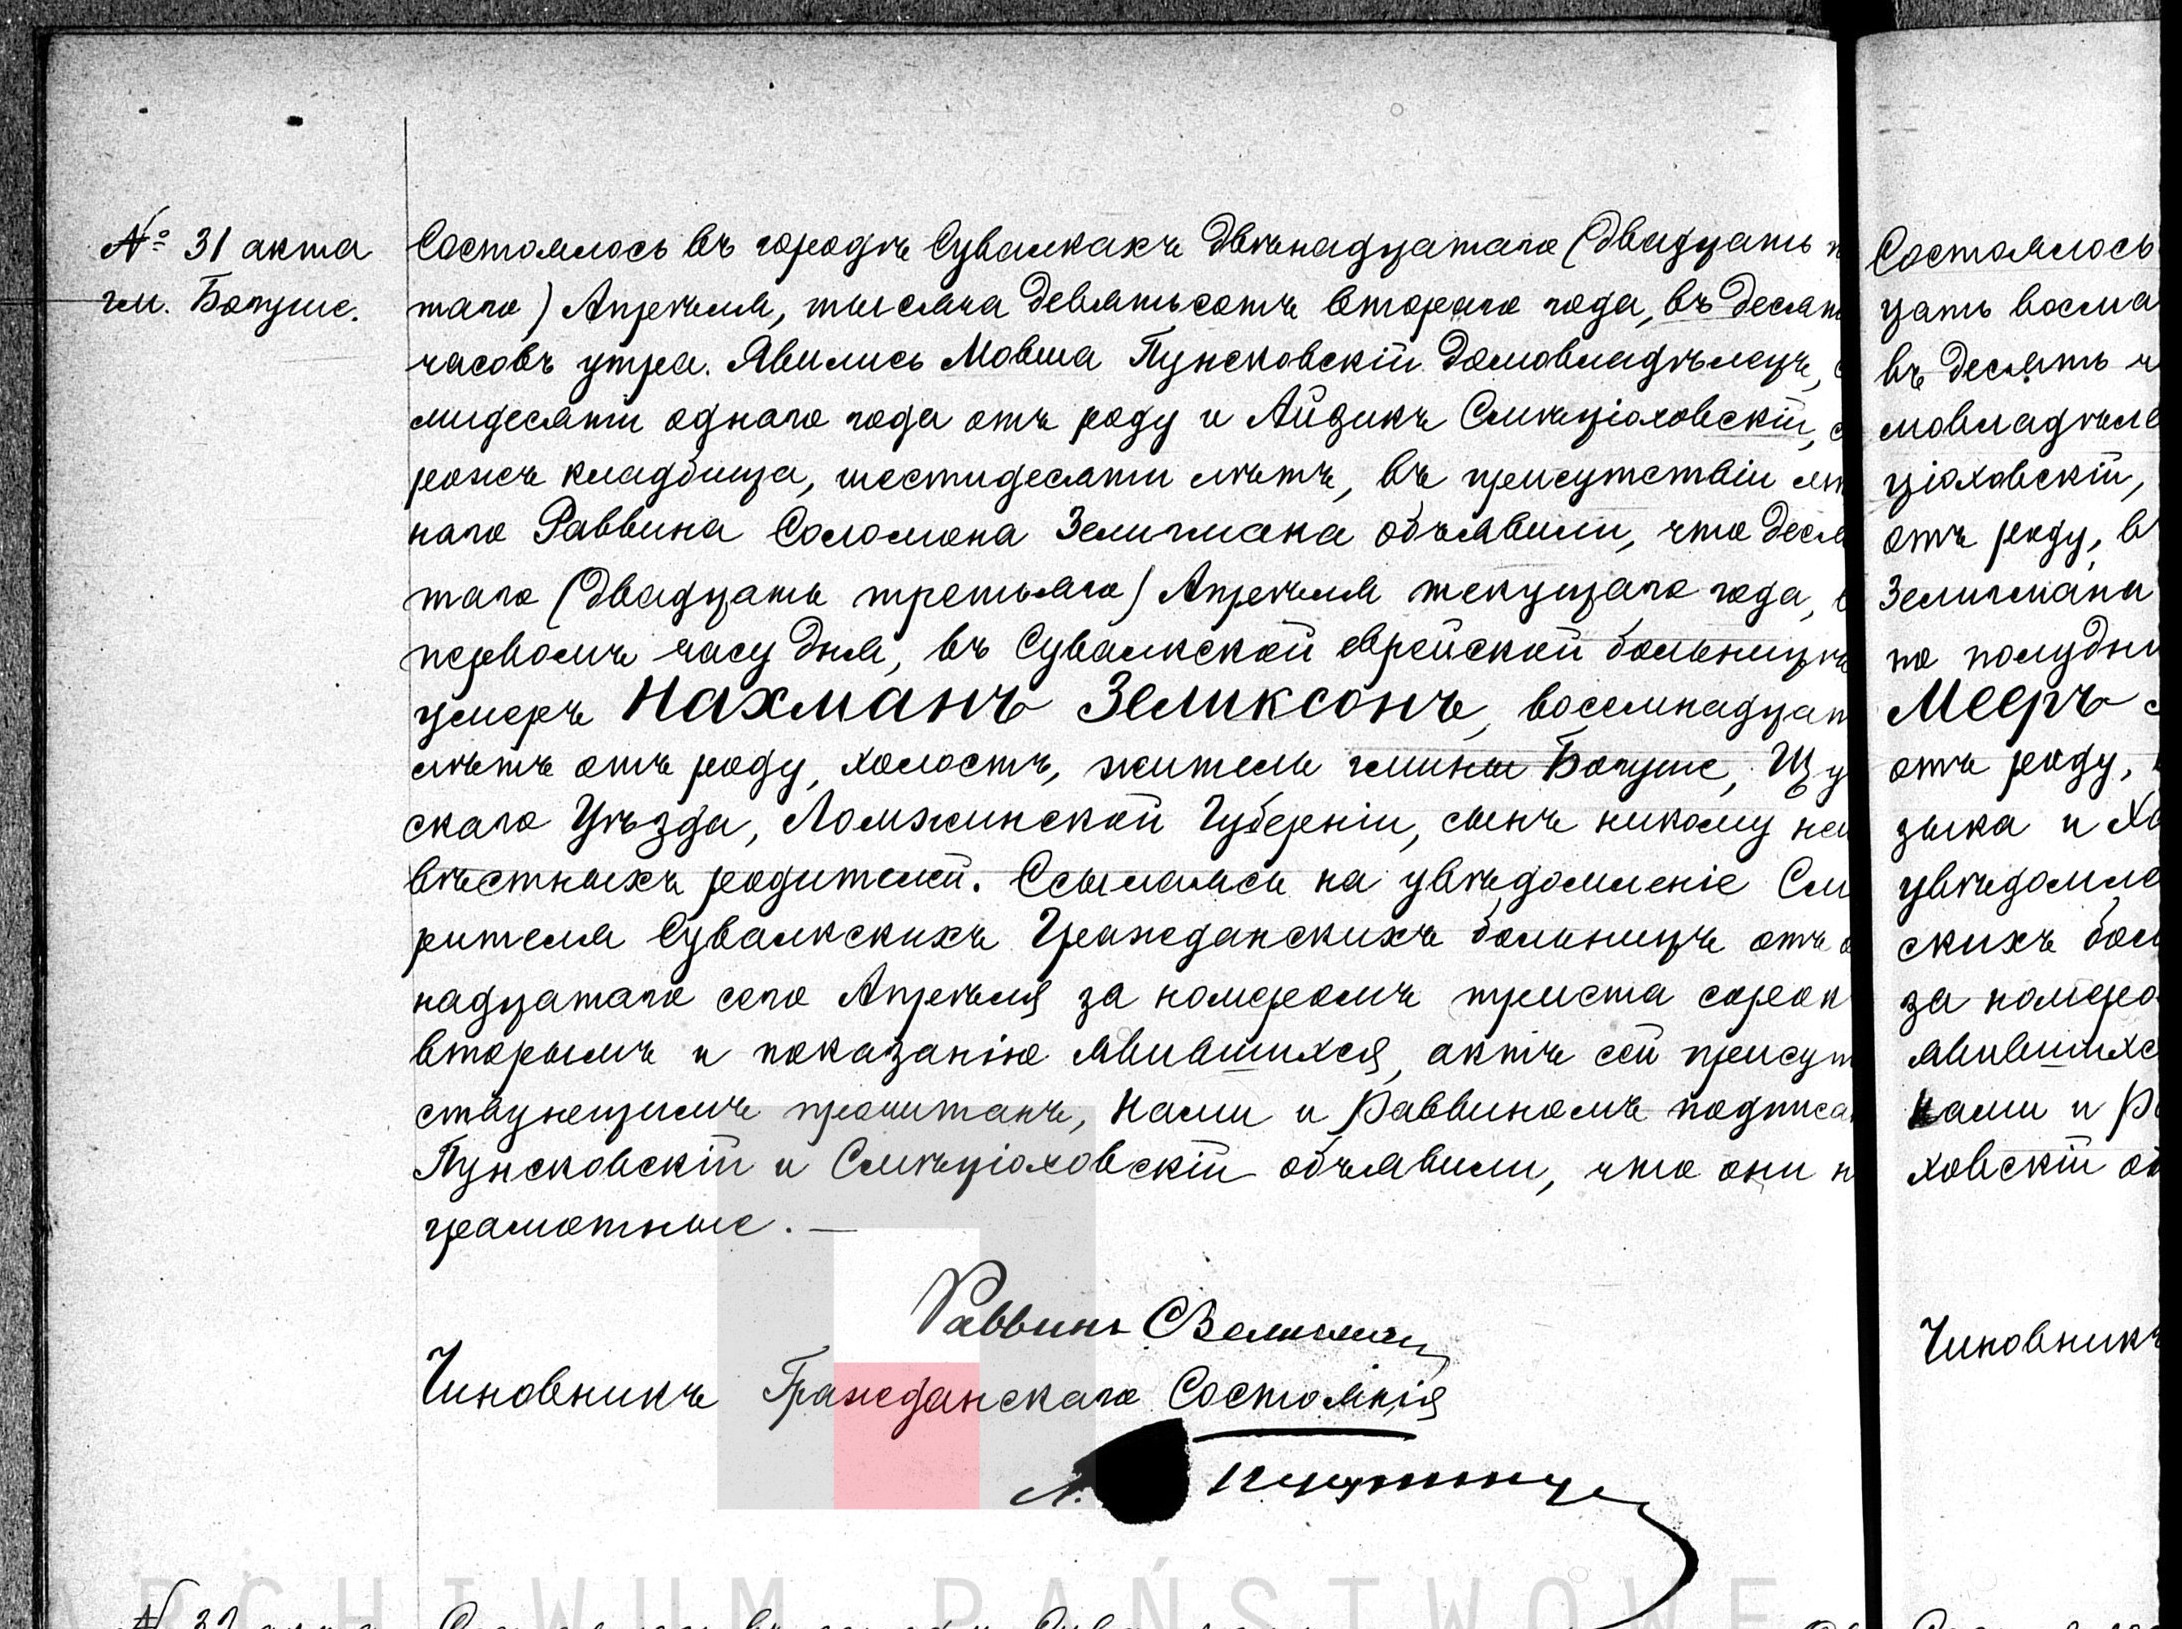 № 31 акта
гм. Богуше.
Состоялось въ городѣ Сувалкахъ двѣнадцатаго (двадцать п
таго) Апрѣля, тысяча девятьсотъ втораго года, въ десят
часовъ утра. Явились Мовша Пунсковскій домовладѣлецъ, с
мидесяти одного года отъ роду и Айзикъ Смѣціоховскій, с
рожъ кладбища, шестидесяти лѣтъ, въ присутствіи мѣ
наго Раввина Соломона Зелигмана объявили, что деся
таго (двадцать третьяго) Апрѣля текущаго года, в
первомъ часу дня, въ Сувалкской еврейской больницѣ
умеръ Нахманъ Зеликсонъ, восемнадцат
лѣтъ отъ роду, холостъ, житель гмины Богуше, Щу
скаго Уѣзда, Ломжинской Губерніи, сынъ никому не
вѣстныхъ родителей. Ссылаясь на увѣдомленіе См
рителя Сувалкскихъ Гражданскихъ больницъ отъ о
надцатаго сего Апрѣля за номеромъ триста сорок
вторымъ и показанію явившихся, актъ сей присут
ствующимъ прочитанъ, Нами и Раввиномъ подписа
Пунсковскій и Смѣціоховскій объявили, что они н
грамотные. —
Раввинъ С Зелигман
Чиновникъ Гражданскаго Состоянія
Состоялось
цать восьма
въ десять ч
мовладѣле
ціоховскій,
отъ роду, в
Зелигмана
по полудни
Мееръ
отъ роду,
зыка и Ха
увѣдомле
скихъ бол
за номеро
явившихс
Нами и Ра
ховскій об
Чиновникъ
ARCHIWUM PAŃSTWOWE
№ 32 акта